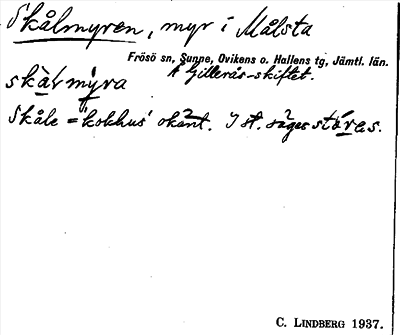 Skålmyren, myr i Målsta
Frösö sn, Sunne, Ovikens o. Hallens tg, Jämtl. län.
Å Gillerås-skiftet.
skàl mỳra
Skåle = 'kokhus' okänt. I st. säges
C. LINDBERG 1937.